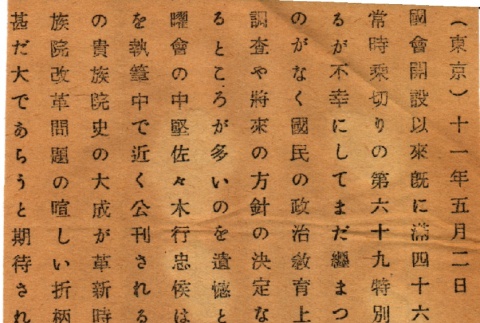 (東京)十一年五月二日
國會開設以來既に滿四十六
常時乗切りの第六十九特別
るが不幸にしてまだ纏まつ
のがなく國民の政治敎育上
調査や將來の方針の決定な
るところが多いのを遺憾と
曜會の中堅佐々木行忠侯は
を執筆中で近く公刊される
の貴族院史の大成が革新時
族院改革問題の喧しい折柄
甚だ大であらうと期待され